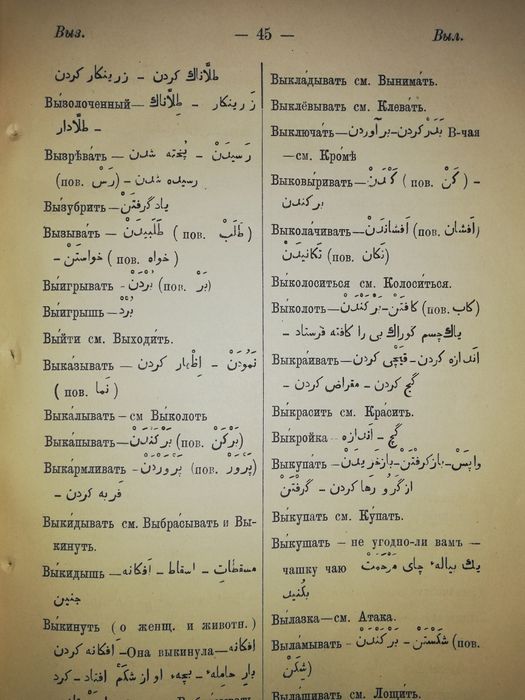 Выз.
— 45 —
Выл.
طلّاناك كردن - زرینكار كردن
Вы́золоченный— طلّاناك - زَرینكار
- طلّادار
Вызрѣва́ть — رَسیدَن - پُخته شدن
(пов. رَس) - رسیده شدن
Вы́зубрить — یاد گرفتَن
Вызыва́ть — طَلَبیدَن ( пов. طَلَبْ )
- خواستَن ( пов. خواه )
Выи́грывать - بُردَن (пов. بَر )
Вы́игрышь— بُرد
Вы́йти см. Выходи́ть.
Выка́зывать — نَمودَن - اِظهار كردن
( пов. نَما )
Выка́лывать — см Вы́колоть
Выка́пывать— بَركَندَن (пов. بَركَن )
Выка́рмливать - پَروَردَن (пов. پَروَر)
- فربه كردن
Выки́дывать см. Выбра́сывать и Вы-
кинуть.
Вы́кидышь— مسقطات - اسقاط - افكانه
جنین
Вы́кинуть (о женщ. и животн.)
افكانه كردن —Она выкинула— افكانه
بار حامله - بچهء او از شكَم افتاد - كرد
Выкла́дывать см. Вынима́ть.
Выклёвывать см. Клева́ть.
Выключа́ть— بَدَر كردن - بر آوردن В-чая
—см. Кромѣ
Выко́выривать— كَندَن ( пов. كَن ) -
بر كندن
Выкола́чивать— اَفشاندَن (пов. اَفشان)
تَكانیدَن (пов. تَكان)
Вы́колоситься см. Колоси́ться.
Вы́колоть— كافتَن - بَركَندَن (пов. كاب)
یاك چسم كوراك بی را كافته فرستاد -
Выкра́ивать— اندازه كردن - قَیچی كردن
گچ كردن - مقراض كردن -
Вы́красить см. Кра́сить.
Вы́кройка — گچ - اَندازه
Выкупа́ть — واپَس - باز گرفتَن - باز خریدَن
از گرو رها كردن - گرفتَن
Вы́купать см. Ку́пать.
Вы́кушать — не угодно-ли вамъ —
чашку чаю یك پیالهء چای مَرحَمَت
بكُنید
Вы́лазка—см. Атака.
Выла́мывать - شكَستَن - بَركَندَن (пов.
شِكَن)
Выла́щивать см. Лощи́ть.